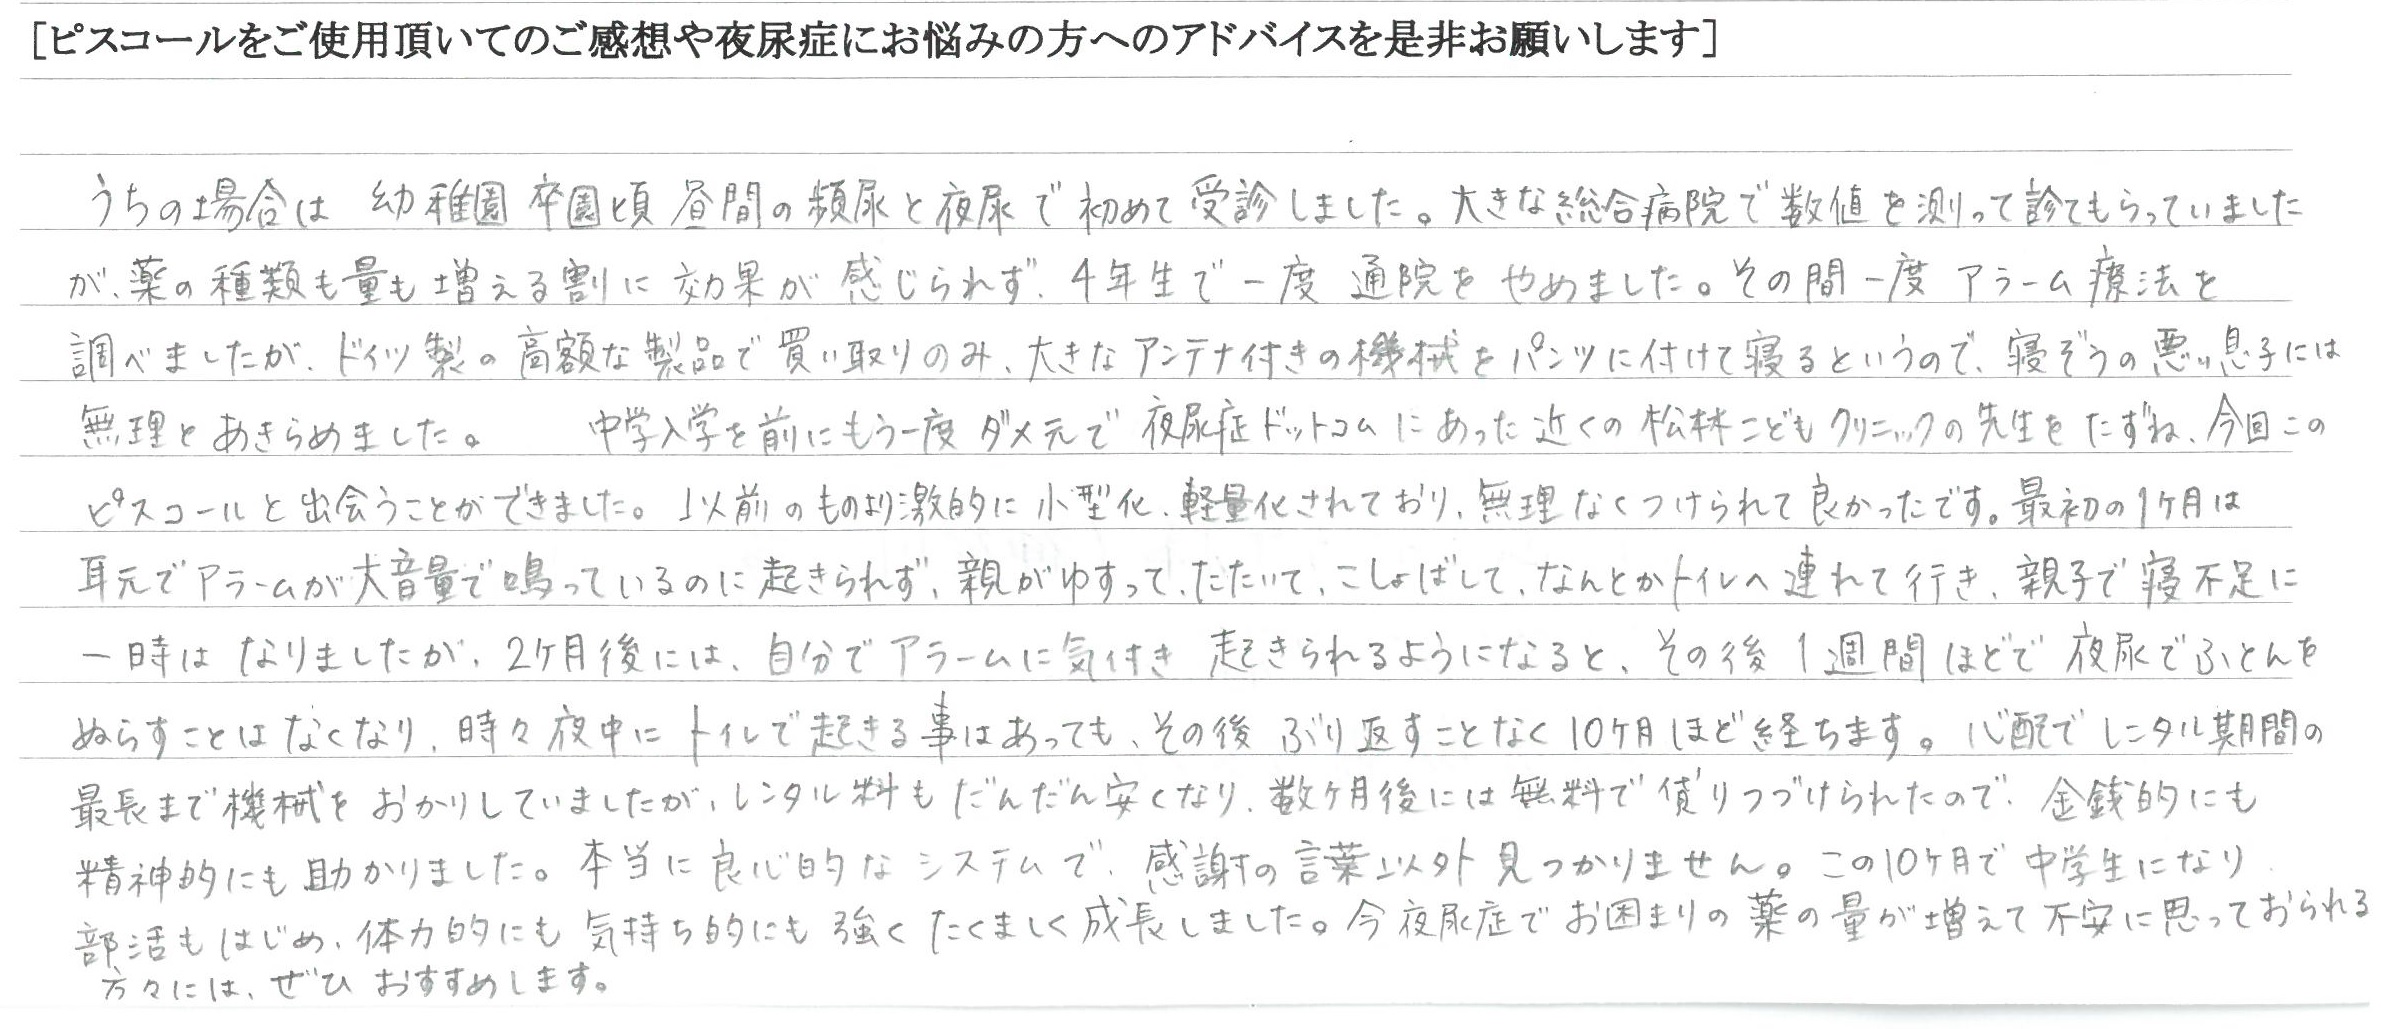 [ピスコールをご使用頂いてのご感想や夜尿症にお悩みの方へのアドバイスを是非お願いします]
うちの場合は 幼稚園 卒園頃 昼間の頻尿と夜尿で初めて受診しました。大きな総合病院で数値を測って診てもらっていました
が、薬の種類も量も増える割に効果が感じられず、4年生で一度 通院をやめました。その間一度 アラーム療法を
調べましたが、ドイツ製の高額な製品で買い取りのみ、大きなアンテナ付きの機械をパンツに付けて寝るというので、寝ぞうの悪い息子には
無理とあきらめました。 中学入学を前にもう一度ダメ元で 夜尿症ドットコムにあった近くの松林こどもクリニックの先生をたずね、今回この
ピスコールと出会うことができました。以前のものより激的に小型化、軽量化されており、無理なくつけられて良かったです。最初の1ヶ月は
耳元でアラームが大音量で鳴っているのに起きられず、親がゆすって、たたいて、こしょばして、なんとかトイレへ連れて行き、親子で寝不足に
一時はなりましたが、2ヶ月後には、自分でアラームに気付き 起きられるようになると、その後1週間ほどで夜尿でふとんを
ぬらすことはなくなり、時々夜中にトイレで起きる事はあっても、その後 ぶり返すことなく10ヶ月ほど経ちます。心配でレンタル期間の
最長まで機械をおかりしていましたが、レンタル料もだんだん安くなり、数ヶ月後には無料で借りつづけられたので、金銭的にも
精神的にも助かりました。本当に良心的なシステムで、感謝の言葉以外見つかりません。この10ヶ月で中学生になり
部活もはじめ、体力的にも気持ち的にも強くたくましく成長しました。今夜尿症でお困まりの薬の量が増えて不安に思っておられる
方々には、ぜひ おすすめします。